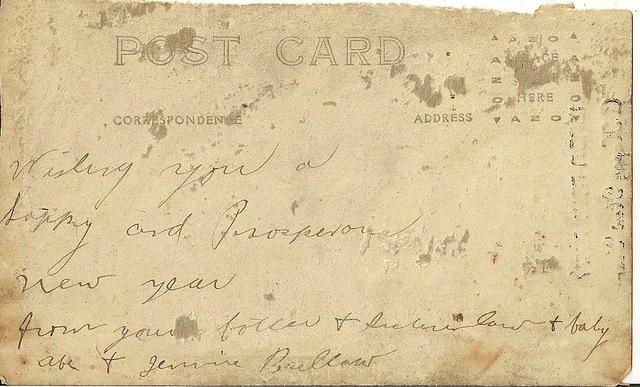 POST CARD
AZO
PLACE
HERE
AZO
CORRESPONDENCE ADDRESS
Wishing you a
happy and Prosperous
new year
from your & in law & baby
abe & Jennie